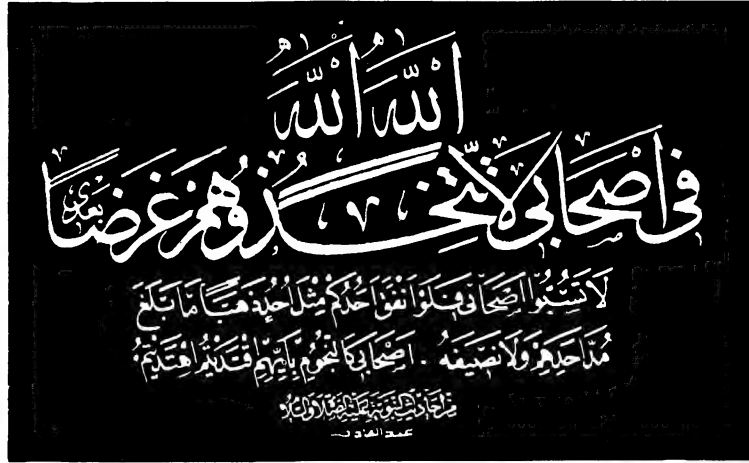 اللّٰه اللّٰه
في اصحابي لا تتخذوهم غرضا بعدي
لا تسبوا اصحابي فلو انفق احدكم مثل احد ذهبا ما بلغ
مد احدهم ولا نصيفه . اصحابي كالنجوم بايهم اقتديتم اهتديتم
من احاديث النبوية عليه الصلاة والسلام